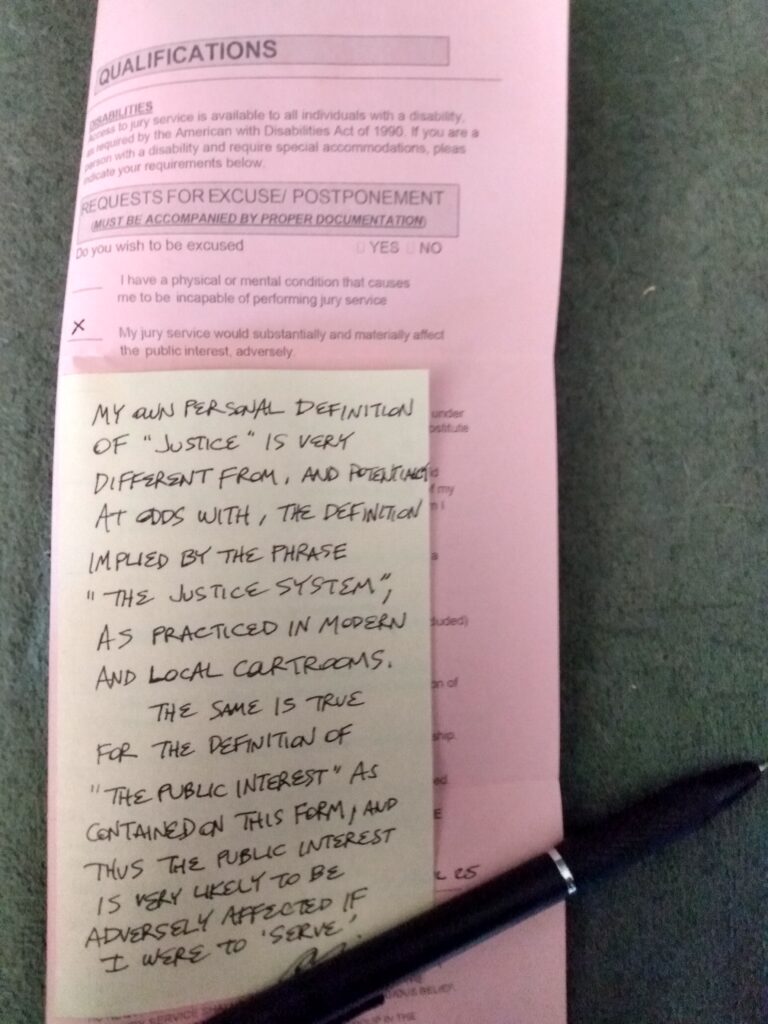 QUALIFICATIONS
DISABILITIES
Access to jury service is available to all individuals with a disability,
as required by the American with Disabilities Act of 1990. If you are a
person with a disability and require special accommodations, pleas
indicate your requirements below.
REQUESTS FOR EXCUSE/ POSTPONEMENT
(MUST BE ACCOMPANIED BY PROPER DOCUMENTATION)
Do you wish to be excused YES NO
I have a physical or mental condition that causes
me to be incapable of performing jury service
X My jury service would substantially and materially affect
the public interest, adversely.
under
MY OWN PERSONAL DEFINITION
OF "JUSTICE" IS VERY
DIFFERENT FROM, AND POTENTIALLY
AT ODDS WITH, THE DEFINITION
IMPLIED BY THE PHRASE
"THE JUSTICE SYSTEM",
AS PRACTICED IN MODERN
AND LOCAL COURTROOMS.
THE SAME IS TRUE
FOR THE DEFINITION OF
"THE PUBLIC INTEREST" AS
CONTAINED ON THIS FORM, AND
THUS THE PUBLIC INTEREST
IS VERY LIKELY TO BE
ADVERSELY AFFECTED IF
I WERE TO 'SERVE'.
of my
a
of
25
BELIEF.
IN THE